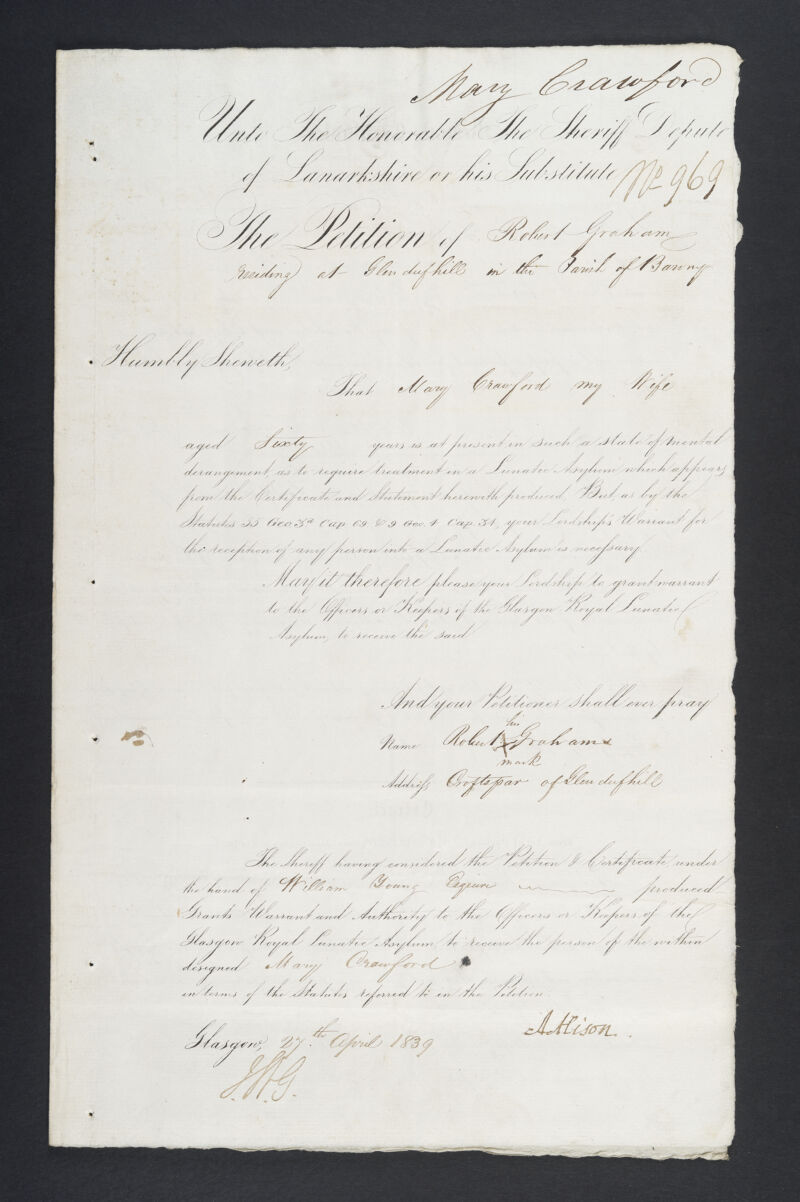 Mary Crawford
Unto The Honorable The Sheriff Depute
of Lanarkshire or his Substitute No 969
The Petition of Robert Graham
residing at Glenduffhill in the Parish of Barony
Humbly Sheweth,
That Mary Crawford my Wife
aged Sixty years is at present in such a state of mental
derangement, as to require treatment in a Lunatic Asylum which appears
from the Certificate and Statement herewith produced. But, as by the
Statutes 55 Geo 3d Cap. 69 & 9 Geo. 4 Cap. 34, your Lordship's Warrant for
the reception of any person into a Lunatic Asylum is necessary
May it therefore please your Lordship to grant warrant
to the Officers or Keepers of the Glasgow Royal Lunatic
Asylum, to receive the said
And your Petitioner shall ever pray
his
Name Robert X Graham
mark
Address Croftspar of Glenduffhill
The Sheriff having considered the Petition & Certificate under
the hand of William Young Esquire produced
Grants Warrant and Authority to the Officers or Keepers of the
Glasgow Royal Lunatic Asylum, to receive the person of the within
designed Mary Crawford
in terms of the Statutes referred to in the Petition.
Glasgow, 27th April 1839 A Alison.